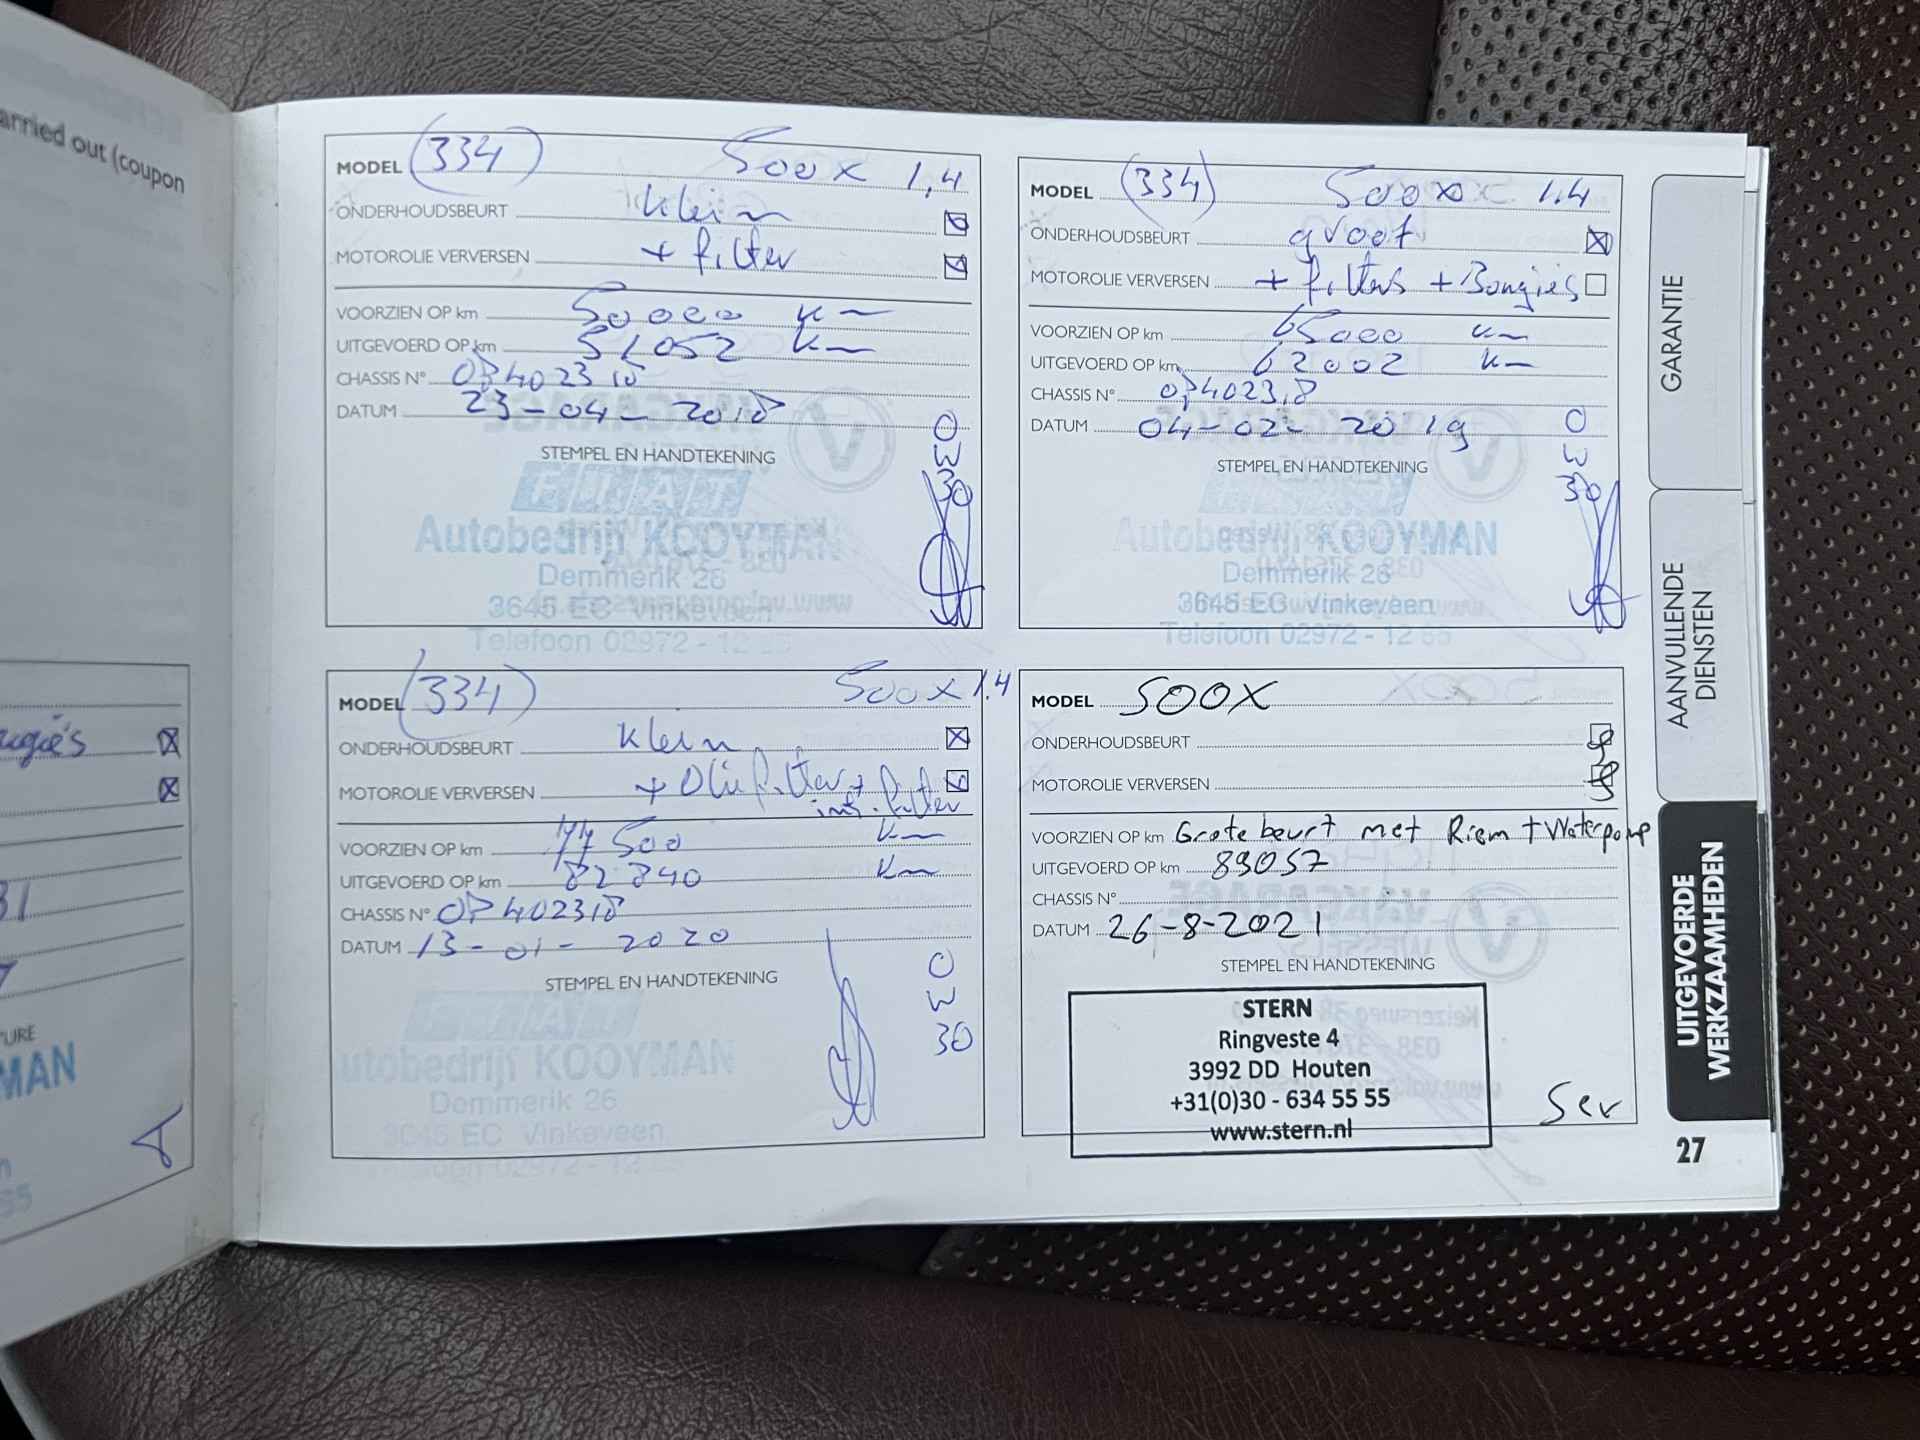 arried out (coupon
MODEL (334) 500X 1,4
ONDERHOUDSBEURT klein
MOTOROLIE VERVERSEN + filter
VOORZIEN OP km 50000 km
UITGEVOERD OP km 51052 km
CHASSIS N° 0P402318
DATUM 23-04-2018
STEMPEL EN HANDTEKENING
0
W
30
FIAT
Autobedrijf KOOYMAN
Demmerik 26
3645 EC Vinkeveen
Telefoon 02972 - 12 65
MODEL (334) 500X 1.4
ONDERHOUDSBEURT groot
MOTOROLIE VERVERSEN + filters + Bougies
VOORZIEN OP km 65000 km
UITGEVOERD OP km 62002 km
CHASSIS N° 0P402318
DATUM 04-02-2019
STEMPEL EN HANDTEKENING
0
W
30
FIAT
Autobedrijf KOOYMAN
Demmerik 26
3645 EG Vinkeveen
Telefoon 02972 - 12 65
MODEL (334) 500X 1.4
ONDERHOUDSBEURT klein
MOTOROLIE VERVERSEN + Oliefilter +
int. filter
VOORZIEN OP km 77500 km
UITGEVOERD OP km 82840 km
CHASSIS N° 0P402318
DATUM 13-01-2020
STEMPEL EN HANDTEKENING
0
W
30
FIAT
utobedrijf KOOYMAN
Demmerik 26
3645 EC Vinkeveen
02972 - 12
MODEL 500X
ONDERHOUDSBEURT
MOTOROLIE VERVERSEN
VOORZIEN OP km Grote beurt met Riem + Waterpomp
UITGEVOERD OP km 89057
CHASSIS N°
DATUM 26-8-2021
STEMPEL EN HANDTEKENING
STERN
Ringveste 4
3992 DD Houten
+31(0)30 - 634 55 55
www.stern.nl
Ser
GARANTIE
AANVULLENDE
DIENSTEN
UITGEVOERDE
WERKZAAMHEDEN
27
ugie's
31
7
URE
MAN